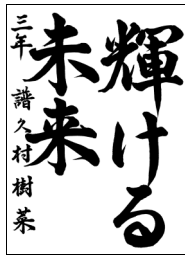 輝ける
未来
三年 譜久村樹菜